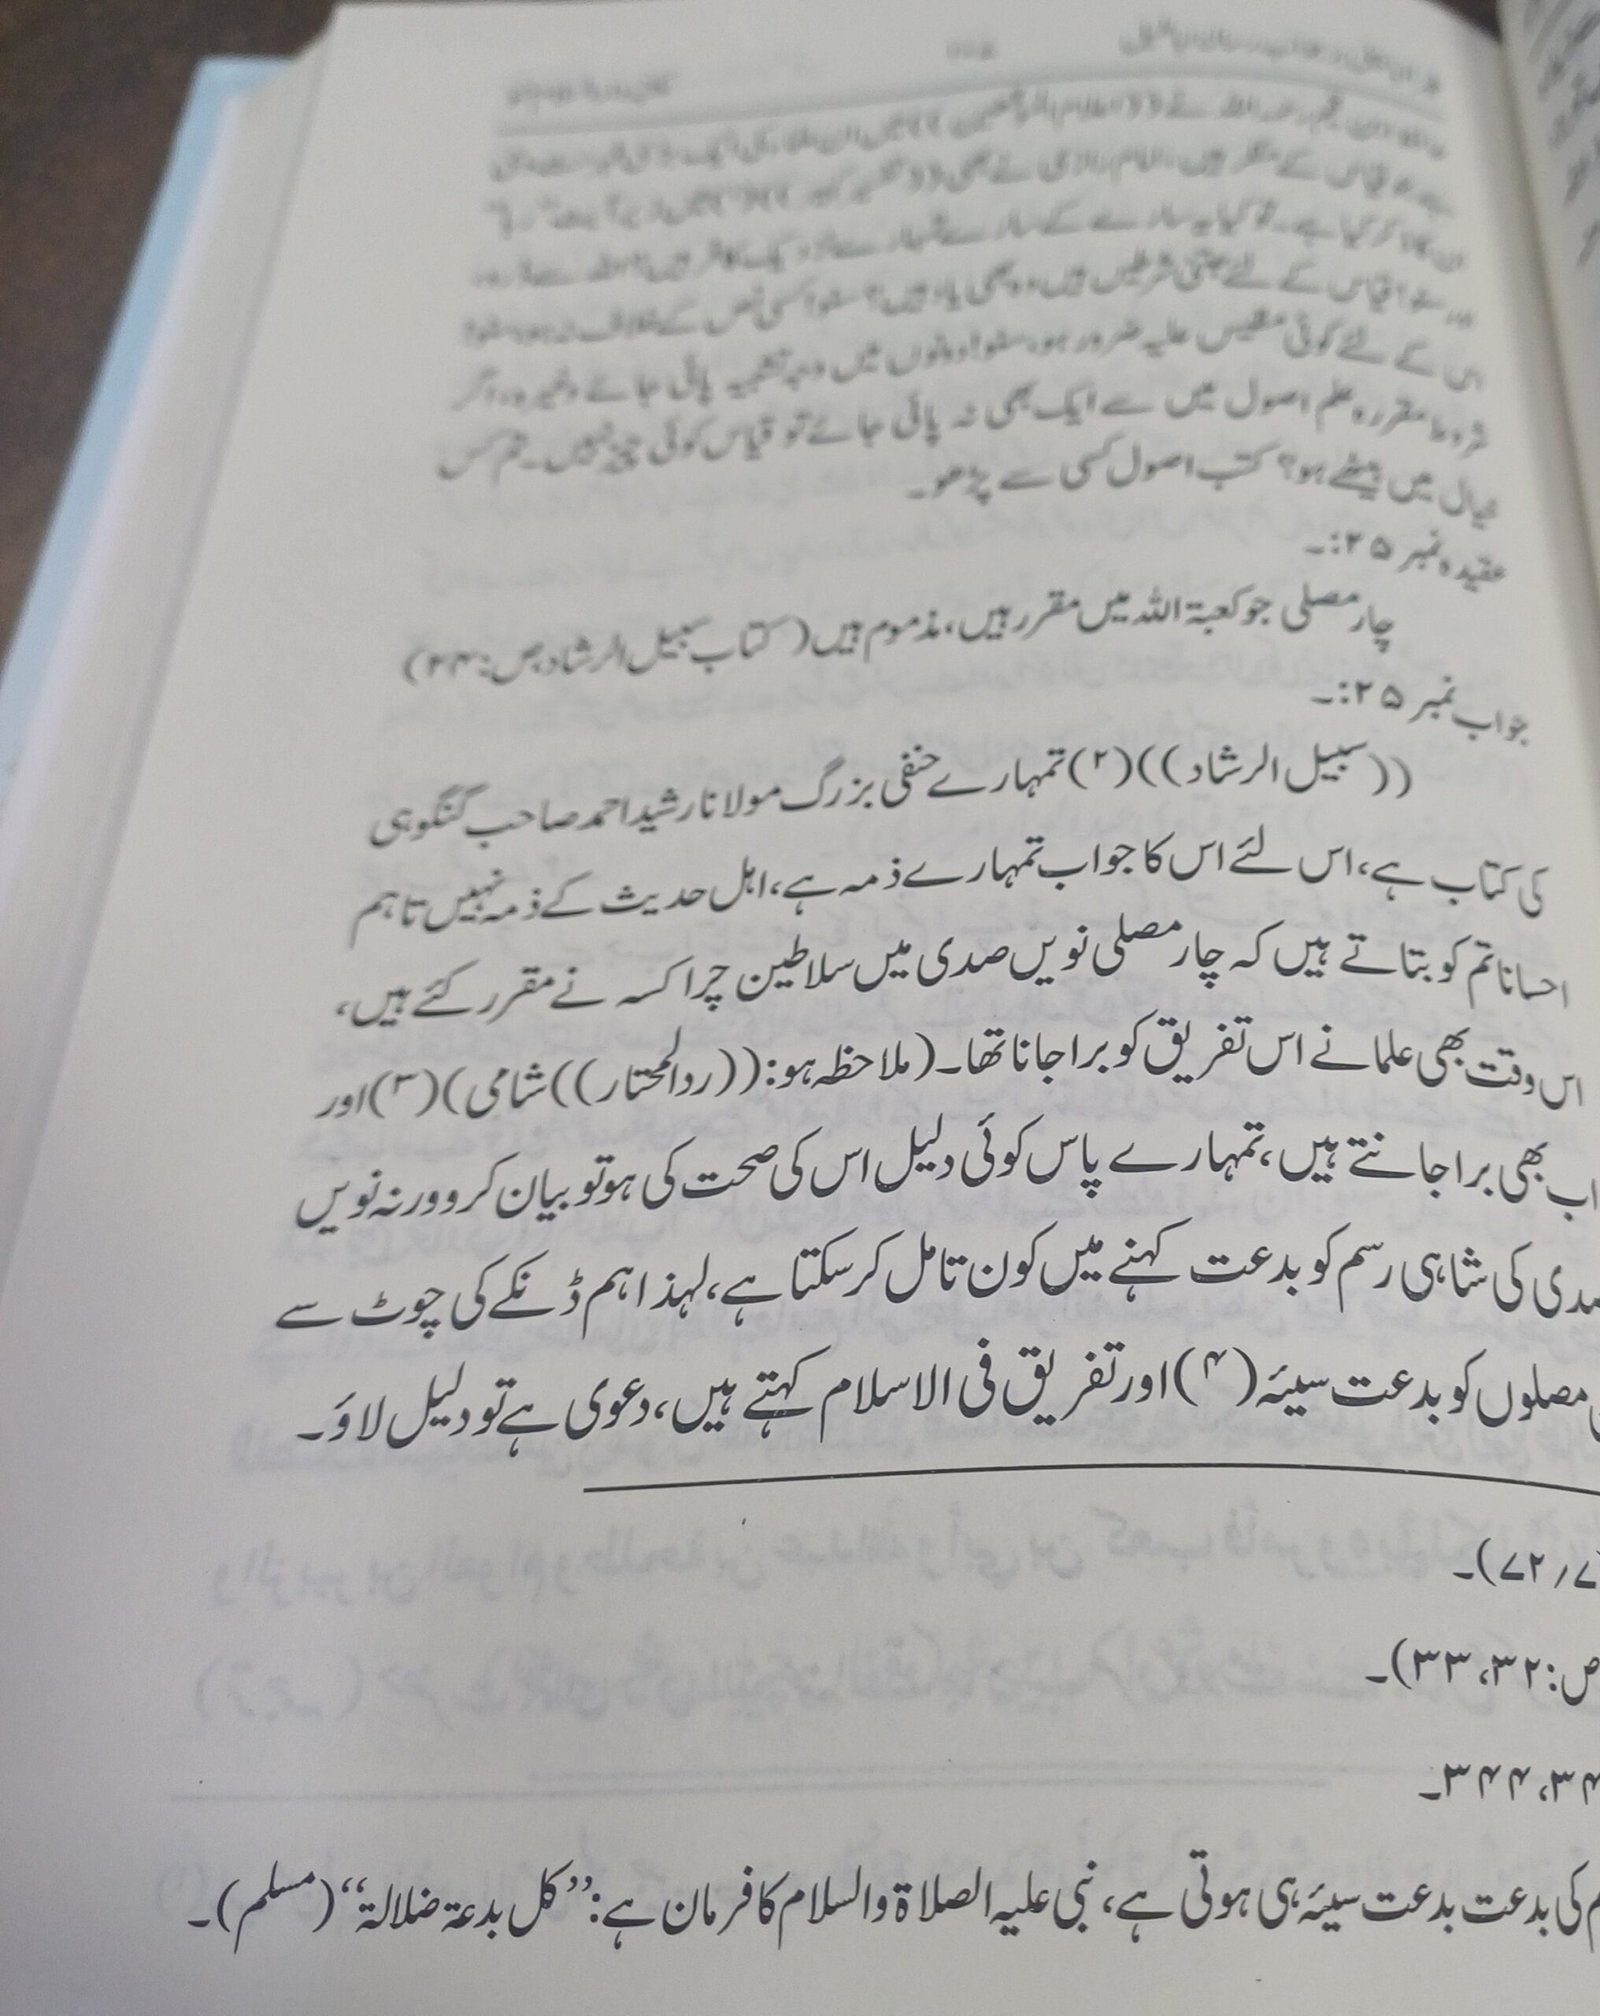 ہے جو قیاس کے منکر ہیں، امام رازی نے بھی ((تفسیر کبیر
ان کا ذکر کیا ہے۔ تو کیا یہ سارے کے سارے تمہارے نزدیک کافر ہیں؟ اللہ سے ڈرو،
اور سنو! قیاس کے لئے جتنی شرطیں ہیں وہ بھی یاد ہیں؟ سنو! کسی نص کے خلاف نہ ہو، سنو!
اس کے لئے کوئی مقیس علیہ ضرور ہو، سنو! دونوں میں وجہ تشبیہ پائی جائے وغیرہ، اگر
شروط مقررہ علم اصول میں سے ایک بھی نہ پائی جائے تو قیاس کوئی چیز نہیں۔ تم کس
خیال میں بیٹھے ہو؟ کتب اصول کسی سے پڑھو۔
عقیدہ نمبر ۲۵:۔
چار مصلی جو کعبۃ اللہ میں مقرر ہیں، مذموم ہیں (کتاب سبیل الرشاد ص:
جواب نمبر ۲۵:۔
((سبیل الرشاد))(۲) تمہارے حنفی بزرگ مولانا رشید احمد صاحب گنگوہی
کی کتاب ہے، اس لئے اس کا جواب تمہارے ذمہ ہے، اہل حدیث کے ذمہ نہیں تاہم
احسانا تم کو بتاتے ہیں کہ چار مصلی نویں صدی میں سلاطین چراکسہ نے مقرر کئے ہیں،
اس وقت بھی علما نے اس تفریق کو برا جانا تھا۔ (ملاحظہ ہو: ((ردالمحتار)) شامی)(۳) اور
اب بھی برا جانتے ہیں، تمہارے پاس کوئی دلیل اس کی صحت کی ہو تو بیان کرو ورنہ نویں
صدی کی شاہی رسم کو بدعت کہنے میں کون تامل کر سکتا ہے، لہذا ہم ڈنکے کی چوٹ سے
مصلوں کو بدعت سیئہ (۴) اور تفریق فی الاسلام کہتے ہیں، دعوی ہے تو دلیل لاؤ۔
۷/۲۷)۔
ص: ۳۲، ۳۳)۔
۳۴۴۔
کی بدعت بدعت سیئہ ہی ہوتی ہے، نبی علیہ الصلاۃ والسلام کا فرمان ہے: ”کل بدعۃ ضلالۃ“ (مسلم)۔